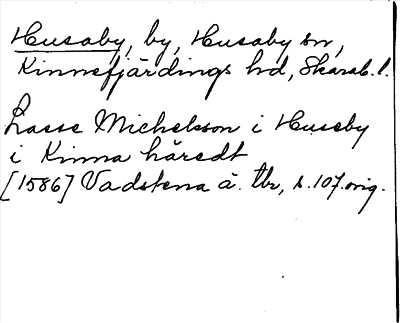 Husaby, by, Husaby sn,
Kinnefjärdings hd, Skarab. l.
Lasse Michelsson i Huseby
i Kinna häredt
[1586] Vadstena ä. tbr, s. 107. orig.